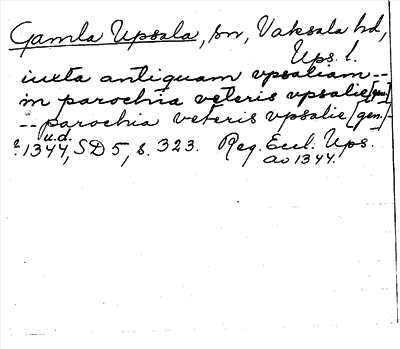 Gamla Upsala, sn, Vaksala hd,
Ups. l.
iuxta antiquam vpsaliam --
in parochia veteris vpsalie [gen.]
-- parochia veteris vpsalie [gen.] -
u.d.
? 1344, SD 5, s. 323. Reg. Eccl. Ups.
av 1344.